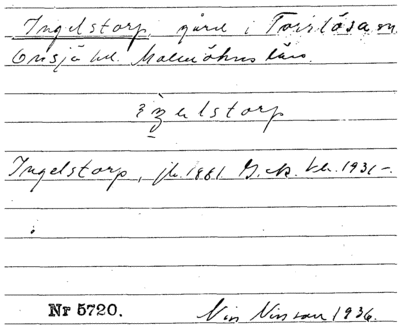 Ingelstorp, gård i Torrlösa sn.
Onsjö hd. Malmöhus län.
elstorp
Ingelstorp, jb. 1881 G. ek. bl. 1931-.
Nr 5720. Nils Nilsson 1936.